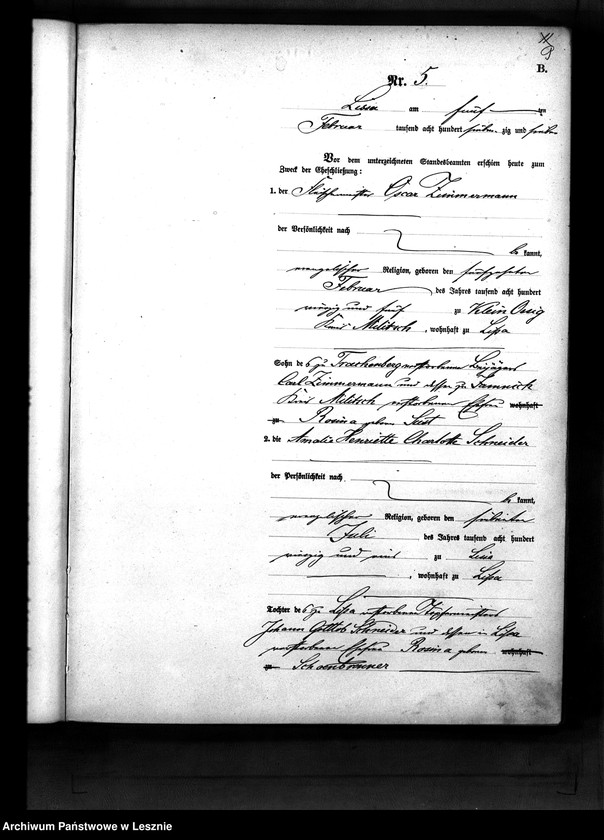 B.
Nr. 5.
Lissa am fünften
Februar tausend acht hundert sieben zig und sieben
Vor dem unterzeichneten Standesbeamten erschien heute zum
Zweck der Eheschließung:
1. der Oscar Zimmermann
der Persönlichkeit nach
be kannt,
evangelischer Religion, geboren den fünfzehnten
Februar des Jahres tausend acht hundert
vierzig und fünf zu Klein Ossig
Kreis Militsch, wohnhaft zu Lissa
Sohn des zu Trachenberg verstorbenen
Carl Zimmermann und dessen zu
Kreis Militsch verstorbenen Ehefrau wohnhaft
zu Rosina geboren
2. die Amalie Henriette Charlotte Schneider
der Persönlichkeit nach
be kannt,
evangelischer Religion, geboren den siebenten
Juli des Jahres tausend acht hundert
vierzig und eins zu Lissa
, wohnhaft zu Lissa
Tochter des zu Lissa verstorbenen Töpfermeisters
Johann Gottlob Schneider und dessen in Lissa
verstorbenen Ehefrau Rosina geboren wohnhaft
zu Schoenbrunner
Archiwum Państwowe w Lesznie